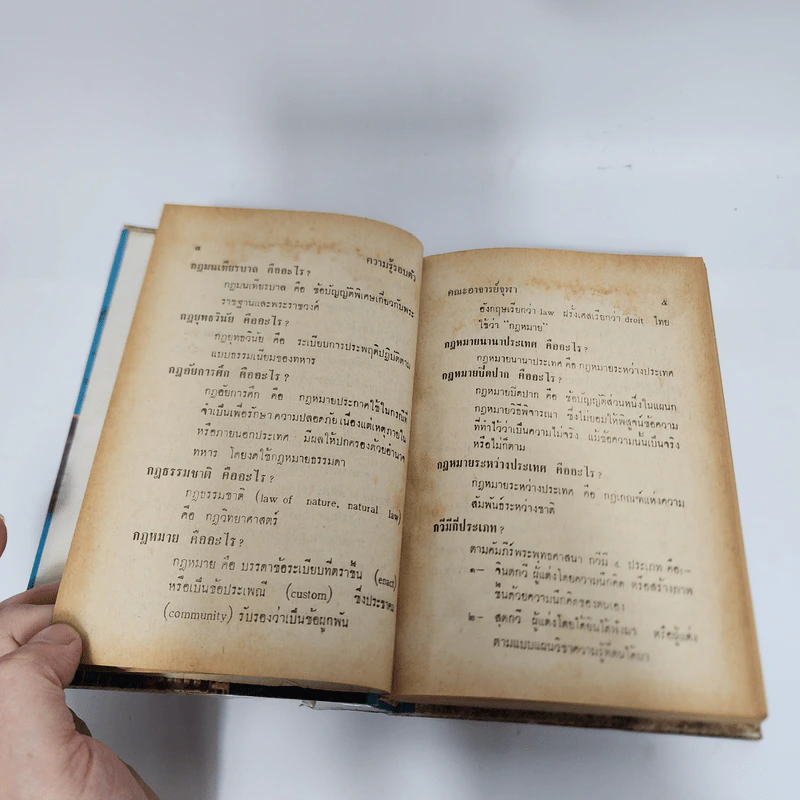 ๔
ความรู้รอบตัว
กฎมนเทียรบาล คืออะไร?
กฎมนเทียรบาล คือ ข้อบัญญัติพิเศษเกี่ยวกับพระ
ราชฐานและพระราชวงศ์
กฎยุทธวินัย คืออะไร?
กฎยุทธวินัย คือ ระเบียบการประพฤติปฏิบัติตาม
แบบธรรมเนียมของทหาร
กฎอัยการศึก คืออะไร?
กฎอัยการศึก คือ กฎหมายประกาศใช้ในกรณีที่
จำเป็นเพื่อรักษาความปลอดภัย เนื่องแต่เหตุภายใน
หรือภายนอกประเทศ มีผลให้ปกครองด้วยอำนาจ
ทหาร โดยงดใช้กฎหมายธรรมดา
กฎธรรมชาติ คืออะไร?
กฎธรรมชาติ (law of nature, natural law)
คือ กฎวิทยาศาสตร์
กฎหมาย คืออะไร?
กฎหมาย คือ บรรดาข้อระเบียบที่ตราขึ้น (enact)
หรือเป็นข้อประเพณี (custom) ซึ่งประชาคม
(community) รับรองว่าเป็นข้อผูกพัน
คณะอาจารย์จุฬา
๕
อังกฤษเรียกว่า law ฝรั่งเศสเรียกว่า droit ไทย
ใช้ว่า "กฎหมาย"
กฎหมายนานาประเทศ คืออะไร?
กฎหมายนานาประเทศ คือ กฎหมายระหว่างประเทศ
กฎหมายปิดปาก คืออะไร?
กฎหมายปิดปาก คือ ข้อบัญญัติส่วนหนึ่งในแผนก
กฎหมายวิธีพิจารณา ซึ่งไม่ยอมให้พิสูจน์ข้อความ
ที่ทำไว้ว่าเป็นความไม่จริง แม้ข้อความนั้นเป็นจริง
หรือไม่ก็ตาม
กฎหมายระหว่างประเทศ คืออะไร?
กฎหมายระหว่างประเทศ คือ กฎเกณฑ์แห่งความ
สัมพันธ์ระหว่างชาติ
กวีมีกี่ประเภท?
ตามคัมภีร์พระพุทธศาสนา กวีมี ๔ ประเภท คือ:—
๑— จินตกวี ผู้แต่งโดยความนึกคิด หรือสร้างภาพ
ขึ้นด้วยความนึกคิดของตนเอง
๒— สุตกวี ผู้แต่งโดยได้ยินได้ฟังมา หรือผู้แต่ง
ตามแบบแผนวิชาความรู้ที่ตนได้มา